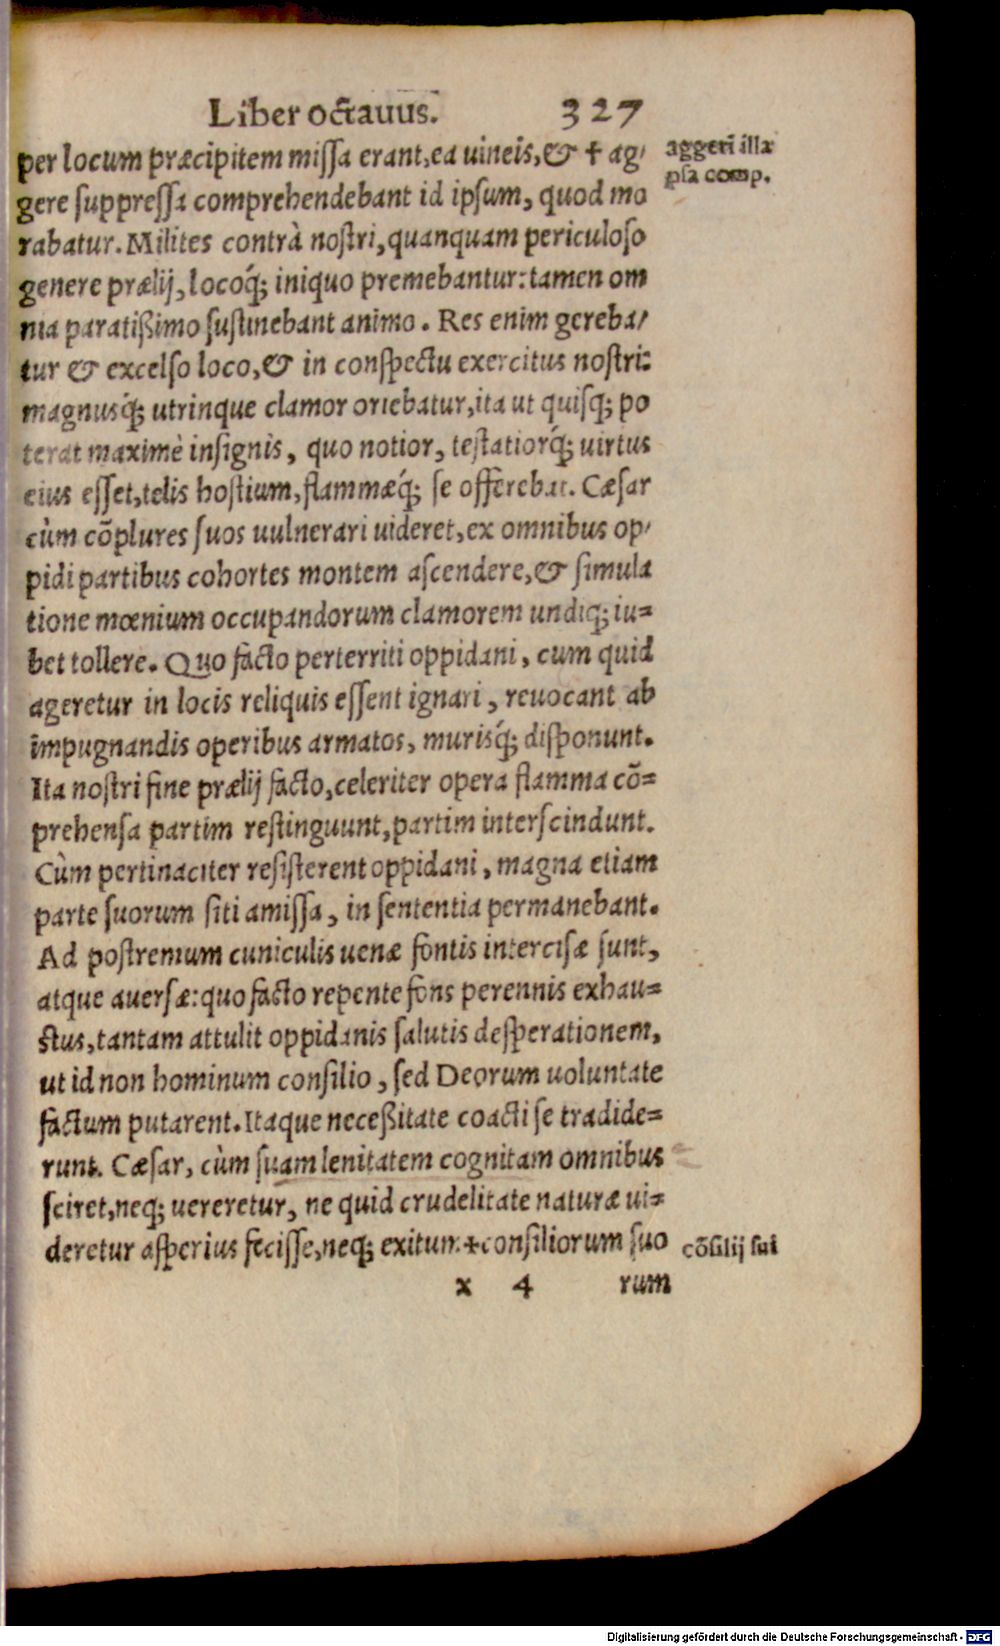 Liber octavus. 327
per locum præcipitem missa erant, ea uineis, & † ag/
gere suppressa comprehendebant id ipsum, quod mo
rabatur. Milites contrà nostri, quanquam periculoso
genere prælij, locoq́; iniquo premebantur: tamen om
nia paratißimo sustinebant animo. Res enim gereba/
tur & excelso loco, & in conspectu exercitus nostri:
magnusq́; utrinque clamor oriebatur, ita ut quisq; po
terat maximè insignis, quo notior, testatiorq́; uirtus
eius esset, telis hostium, flammæq́; se offerebat. Cæsar
cùm cõplures suos uulnerari uideret, ex omnibus op/
pidi partibus cohortes montem ascendere, & simula
tione mœnium occupandorum clamorem undiq; iu=
bet tollere. Quo facto perterriti oppidani, cum quid
ageretur in locis reliquis essent ignari, reuocant ab
impugnandis operibus armatos, murisq́; disponunt.
Ita nostri fine prælij facto, celeriter opera flamma cõ=
prehensa partim restinguunt, partim interscindunt.
Cùm pertinaciter resisterent oppidani, magna etiam
parte suorum siti amissa, in sententia permanebant.
Ad postremum cuniculis uenæ fontis intercisæ sunt,
atque auersæ: quo facto repente fons perennis exhau=
stus, tantam attulit oppidanis salutis desperationem,
ut id non hominum consilio, sed Deorum uoluntate
factum putarent. Itaque neceßitate coacti se tradide=
runt. Cæsar, cùm suam lenitatem cognitam omnibus
sciret, neq; uereretur, ne quid crudelitate naturæ ui=
deretur asperius fecisse, neq; exitum + consiliorum suo
x 4 rum
aggeri illa
psa comp.
cõsilij sui
Digitalisierung gefördert durch die Deutsche Forschungsgemeinschaft - DFG